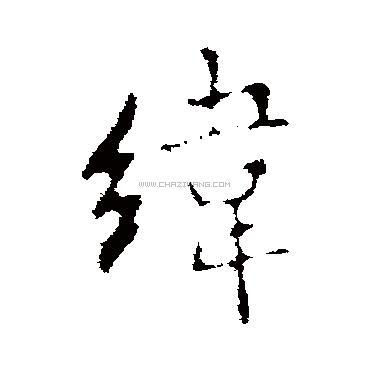 緯
WWW.CHAZIWANG.COM